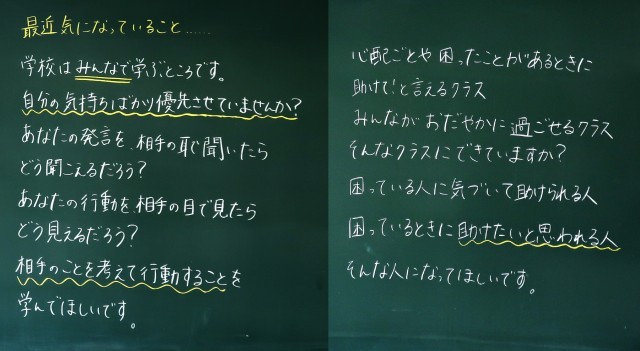 最近気になっていること……
学校はみんなで学ぶところです。
自分の気持ちばかり優先させていませんか？
あなたの発言を、相手の耳で聞いたら
どう聞こえるだろう？
あなたの行動を、相手の目で見たら
どう見えるだろう？
相手のことを考えて行動することを
学んでほしいです。
心配ごとや困ったことがあるときに
助けて！と言えるクラス
みんながおだやかに過ごせるクラス
そんなクラスにできていますか？
困っている人に気づいて助けられる人
困っているときに助けたいと思われる人
そんな人になってほしいです。